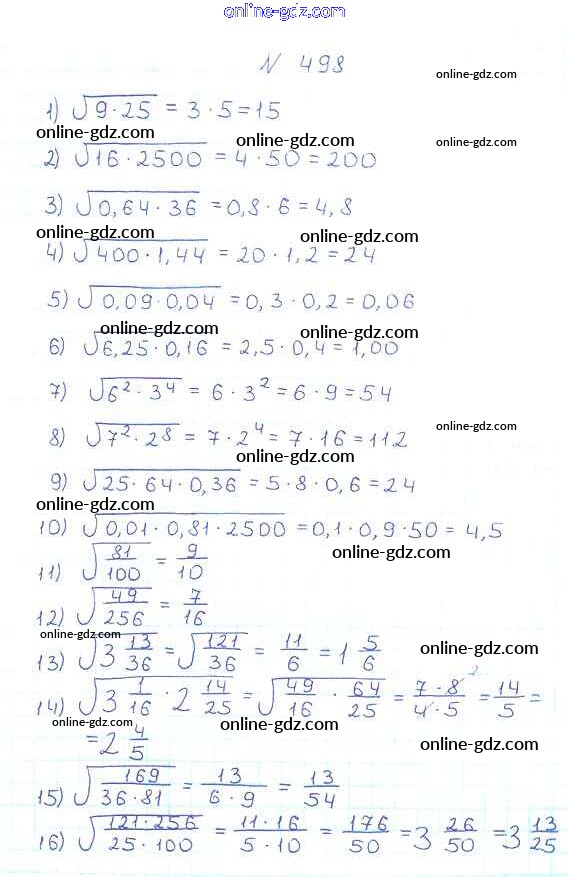 online-gdz.com
N 498
online-gdz.com
1) √9·25 = 3·5=15
online-gdz.com
online-gdz.com
online-gdz.com
2) √16·2500 = 4·50=200
3) √0,64·36 =0,8·6=4,8
online-gdz.com
online-gdz.com
4) √400·1,44 = 20·1,2=24
5) √0,09·0,04 =0,3·0,2=0,06
online-gdz.com
online-gdz.com
6) √6,25·0,16 =2,5·0,4=1,00
7) √6²·3⁴ = 6·3²=6·9=54
online-gdz.com
8) √7²·2⁸ = 7·2⁴=7·16=112
online-gdz.com
9) √25·64·0,36 =5·8·0,6=24
online-gdz.com
online-gdz.com
10) √0,01·0,81·2500 =0,1·0,9·50= 4,5
online-gdz.com
11) √81/100 = 9/10
12) √49/256 = 7/16
online-gdz.com
13) √3 13/36 = √121/36 = 11/6 = 1 5/6
online-gdz.com
14) √3 1/16 · 2 14/25 = √49/16 · 64/25 = 7·8 2/4·5 = 14/5 =
online-gdz.com
online-gdz.com
= 2 4/5
online-gdz.com
15) √169/36·81 = 13/6·9 = 13/54
16) √121·256/25·100 = 11·16/5·10 = 176/50 =3 26/50 =3 13/25